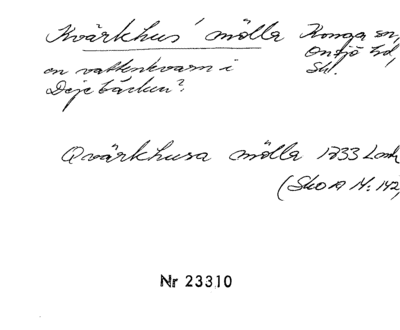 Kvärkhus' mölla Konga sn,
Onsjö hd,
en vattenkvarn i Sk.
Dejebäcken?
Qvärkhusa mölla 1733 Lmk
(SkoA H: 142,
Nr 23310